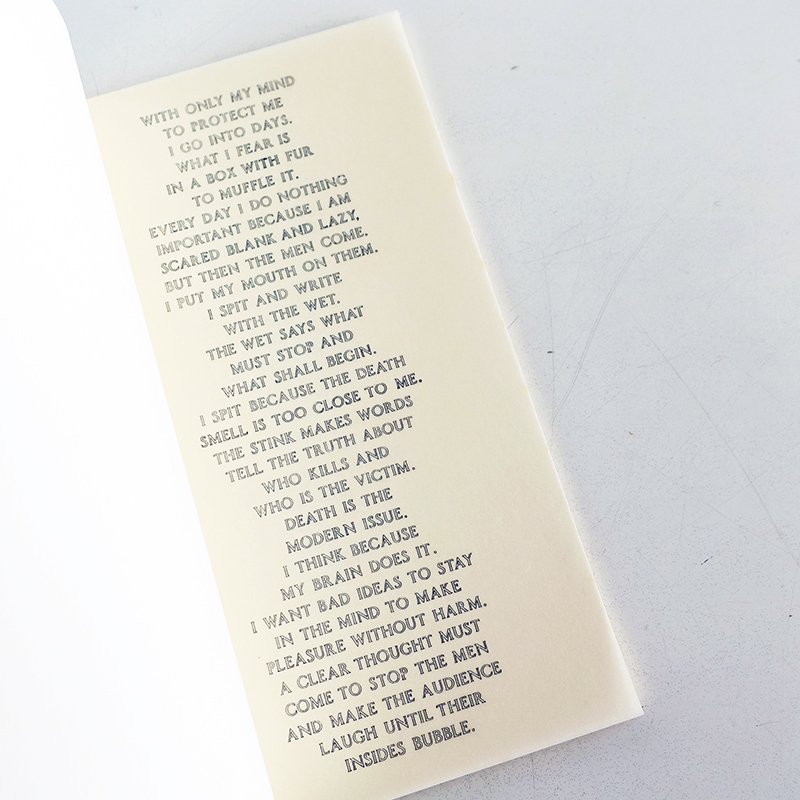 WITH ONLY MY MIND
TO PROTECT ME
I GO INTO DAYS.
WHAT I FEAR IS
IN A BOX WITH FUR
TO MUFFLE IT.
EVERY DAY I DO NOTHING
IMPORTANT BECAUSE I AM
SCARED BLANK AND LAZY,
BUT THEN THE MEN COME.
I PUT MY MOUTH ON THEM.
I SPIT AND WRITE
WITH THE WET.
THE WET SAYS WHAT
MUST STOP AND
WHAT SHALL BEGIN.
I SPIT BECAUSE THE DEATH
SMELL IS TOO CLOSE TO ME.
THE STINK MAKES WORDS
TELL THE TRUTH ABOUT
WHO KILLS AND
WHO IS THE VICTIM.
DEATH IS THE
MODERN ISSUE.
I THINK BECAUSE
MY BRAIN DOES IT.
I WANT BAD IDEAS TO STAY
IN THE MIND TO MAKE
PLEASURE WITHOUT HARM.
A CLEAR THOUGHT MUST
COME TO STOP THE MEN
AND MAKE THE AUDIENCE
LAUGH UNTIL THEIR
INSIDES BUBBLE.